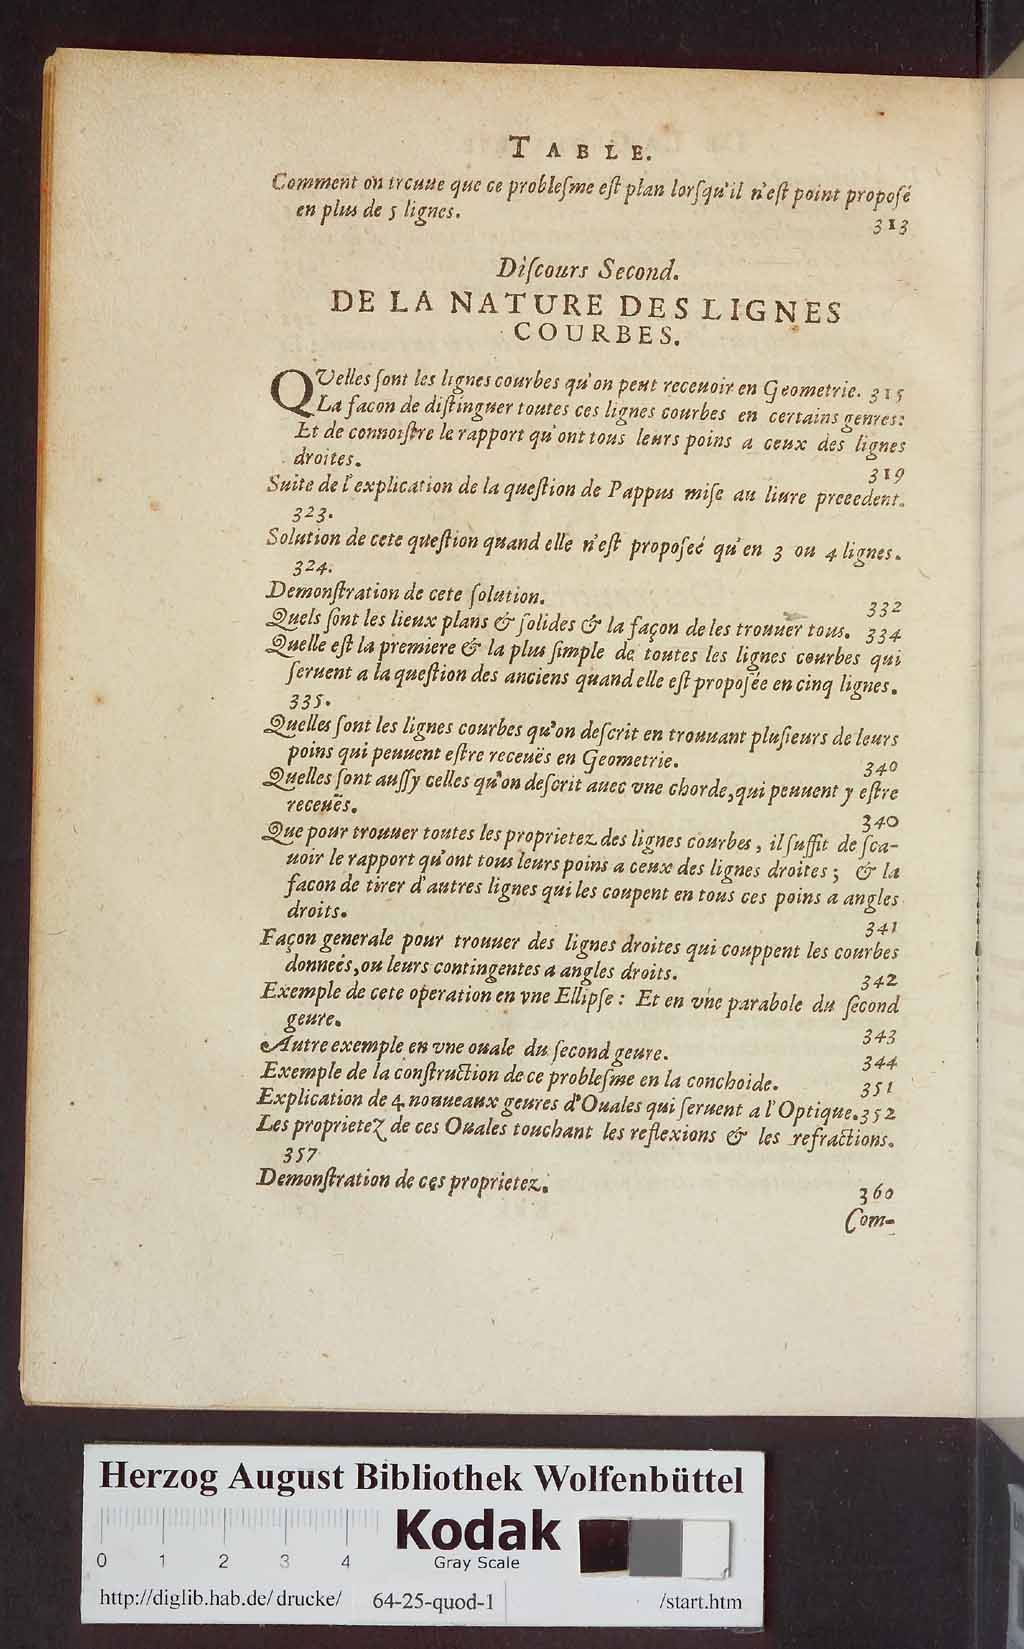 TABLE.
Comment on trouue que ce problesme est plan lorsqu'il n'est point proposé
en plus de 5 lignes. 313
Discours Second.
DE LA NATURE DES LIGNES
COURBES.
QVelles sont les lignes courbes qu'on peut receuoir en Geometrie. 315
La facon de distinguer toutes ces lignes courbes en certains genres:
Et de connoistre le rapport qu'ont tous leurs poins a ceux des lignes
droites. 319
Suite de l'explication de la question de Pappus mise au liure precedent.
323.
Solution de cete question quand elle n'est proposeé qu'en 3 ou 4 lignes.
324.
Demonstration de cete solution. 332
Quels sont les lieux plans & solides & la façon de les trouuer tous. 334
Quelle est la premiere & la plus simple de toutes les lignes courbes qui
seruent a la question des anciens quand elle est proposée en cinq lignes.
335.
Quelles sont les lignes courbes qu'on descrit en trouuant plusieurs de leurs
poins qui peuuent estre receuës en Geometrie. 340
Quelles sont aussy celles qu'on descrit auec vne chorde, qui peuuent y estre
receuës. 340
Que pour trouuer toutes les proprietez des lignes courbes, il suffit de sca-
uoir le rapport qu'ont tous leurs poins a ceux des lignes droites; & la
facon de tirer d'autres lignes qui les coupent en tous ces poins a angles
droits. 341
Façon generale pour trouuer des lignes droites qui couppent les courbes
donneés, ou leurs contingentes a angles droits. 342
Exemple de cete operation en vne Ellipse: Et en vne parabole du second
geure. 343
Autre exemple en vne ouale du second geure. 344
Exemple de la construction de ce problesme en la conchoide. 351
Explication de 4 nouueaux geures d'Ouales qui seruent a l'Optique. 352
Les proprietez de ces Ouales touchant les reflexions & les refractions.
357
Demonstration de ces proprietez. 360
Com-
Herzog August Bibliothek Wolfenbüttel
Kodak
0 1 2 3 4 Gray Scale
http://diglib.hab.de/drucke/ 64-25-quod-1 /start.htm